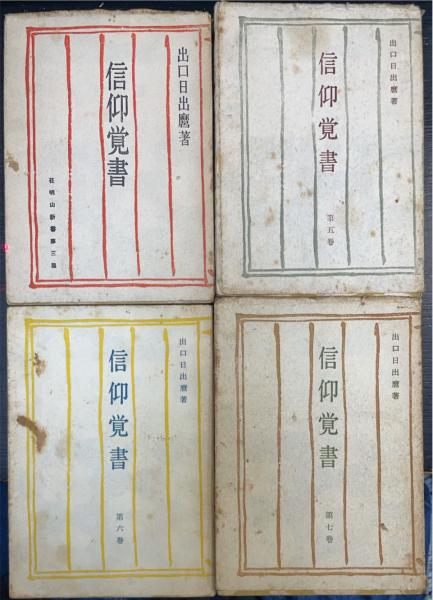 出口日出麿著
信仰覚書
花明山新書第三篇
出口日出麿著
信仰覚書
第五卷
出口日出麿著
信仰覚書
第六卷
出口日出麿著
信仰覚書
第七卷